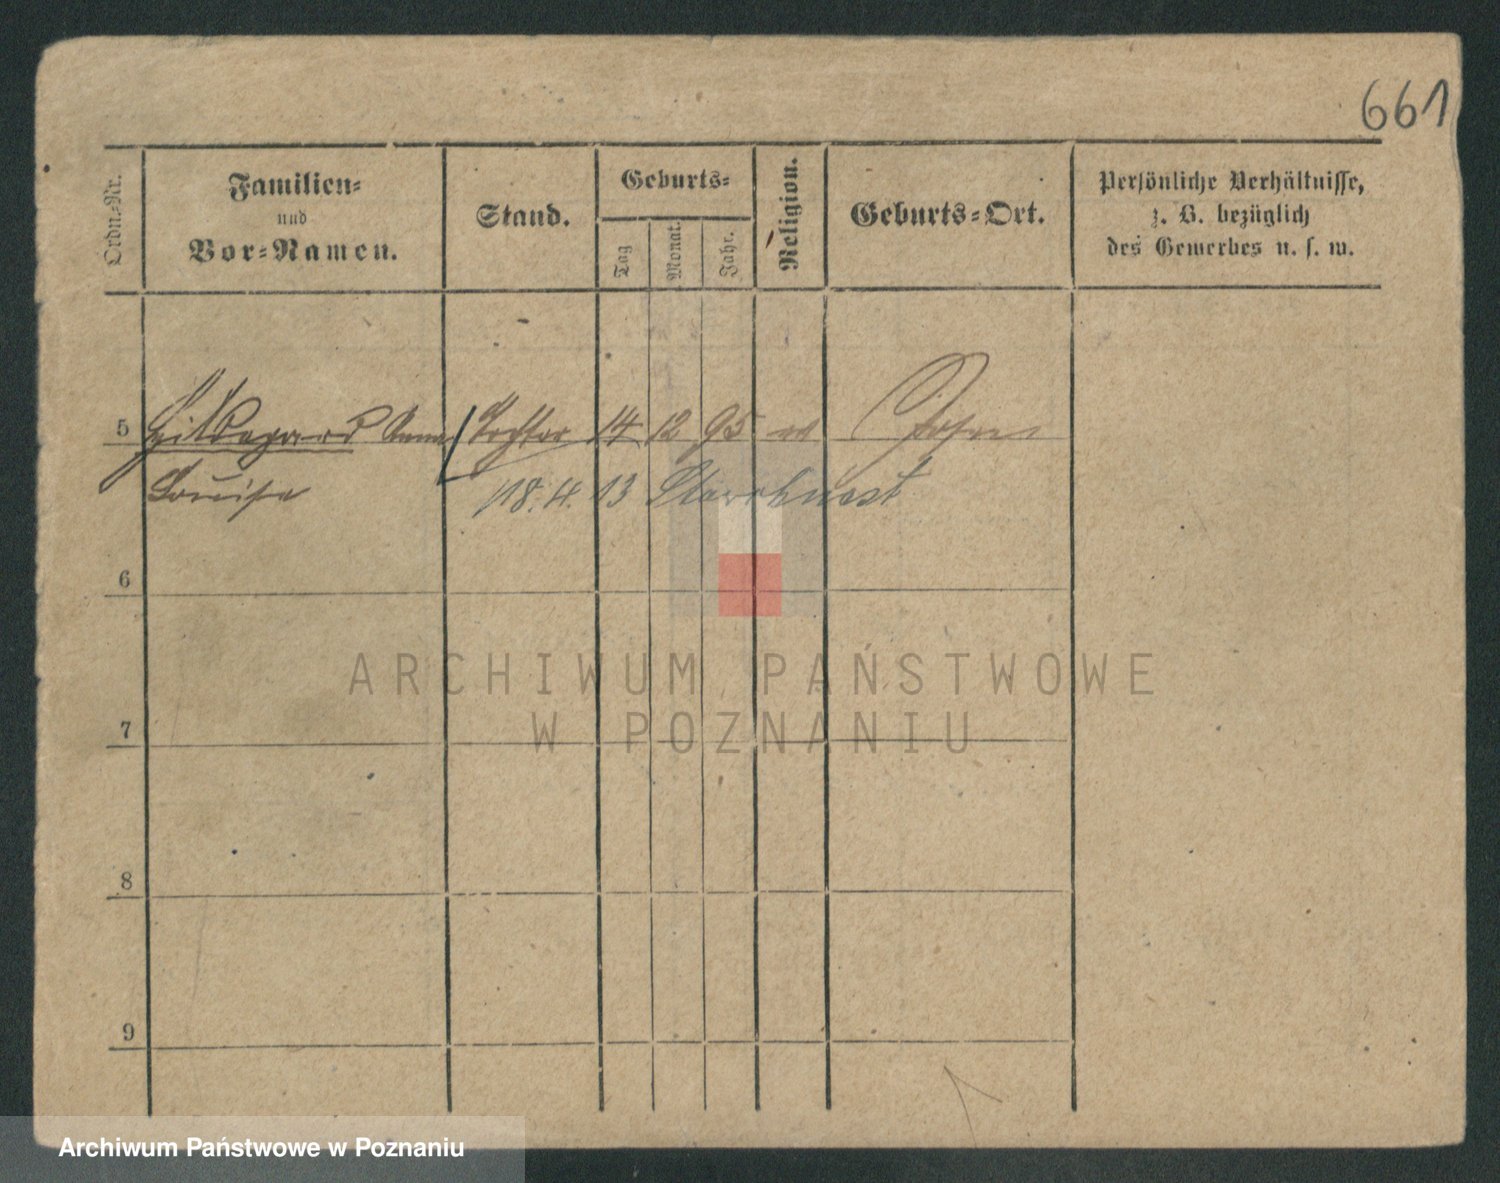 661
Ordn.-Nr.
Familien-
und
Vor-Namen.
Stand.
Geburts-
Tag
Monat.
Jahr.
Religion.
Geburts-Ort.
Persönliche Verhältnisse,
z. B. bezüglich
des Gewerbes u. s. w.
5 Hildegard Anna Tochter 14 12 95 ev Posen
Louise 18. 4. 13
6
7
8
9
ARCHIWUM PAŃSTWOWE
W POZNANIU
Archiwum Państwowe w Poznaniu